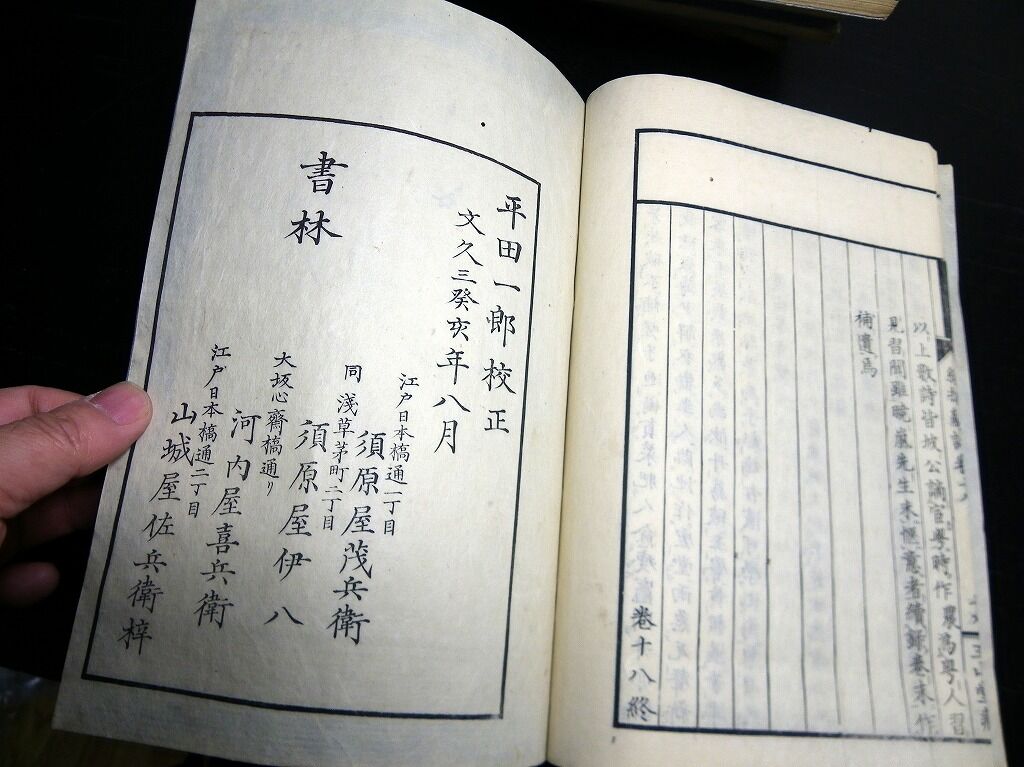 以上歌詩皆坡公謫官粤時作農為粤人習
見習聞雖曉嵐先生未愜意者續録卷末作
補遺焉
卷十八終
平田一郎校正
文久三癸亥年八月
書林
江戸日本橋通一丁目
須原屋茂兵衛
同淺草茅町二丁目
須原屋伊八
大坂心齋橋通り
河内屋喜兵衛
江戸日本橋通二丁目
山城屋佐兵衛梓